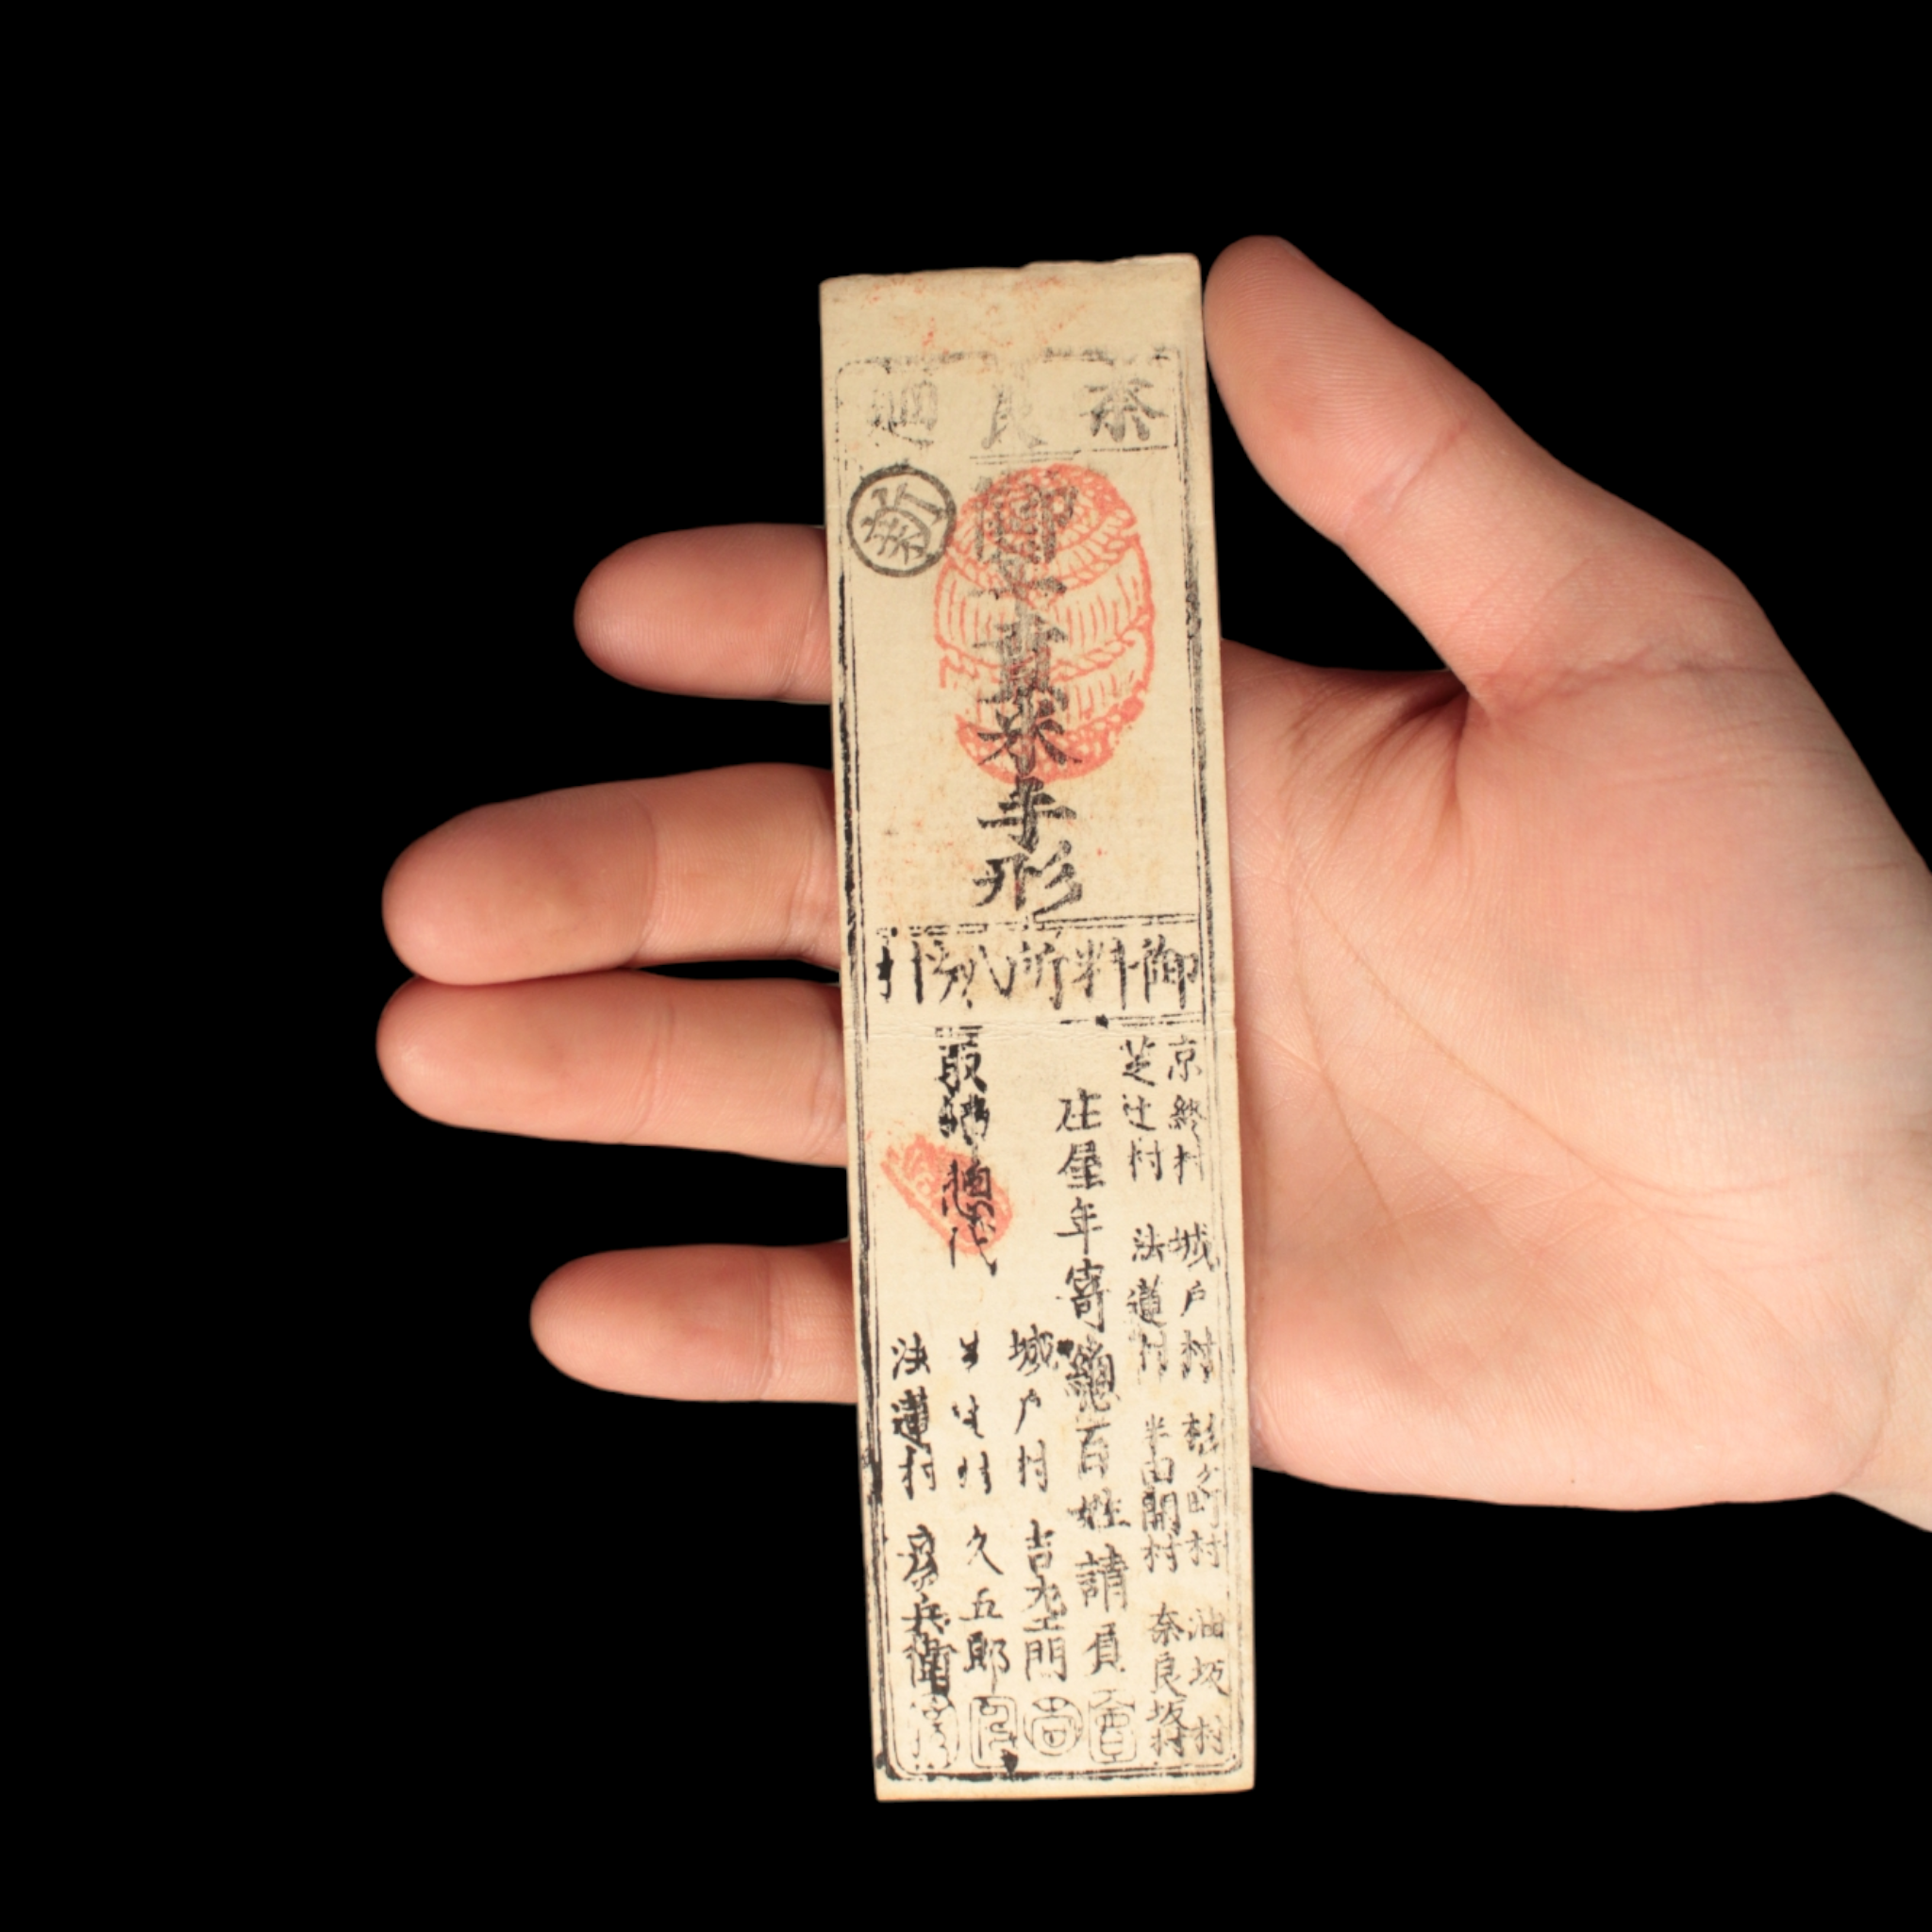 奈良廻
新
御上貢米手形
御料所八ヶ村引
京終村 城戸村 杉ヶ町村 油坂村
芝辻村 法蓮村 半田開村 奈良坂村
庄屋年寄惣百姓請負
取締惣代
城戸村 吉左衛門
久五郎
法蓮村 彦兵衛